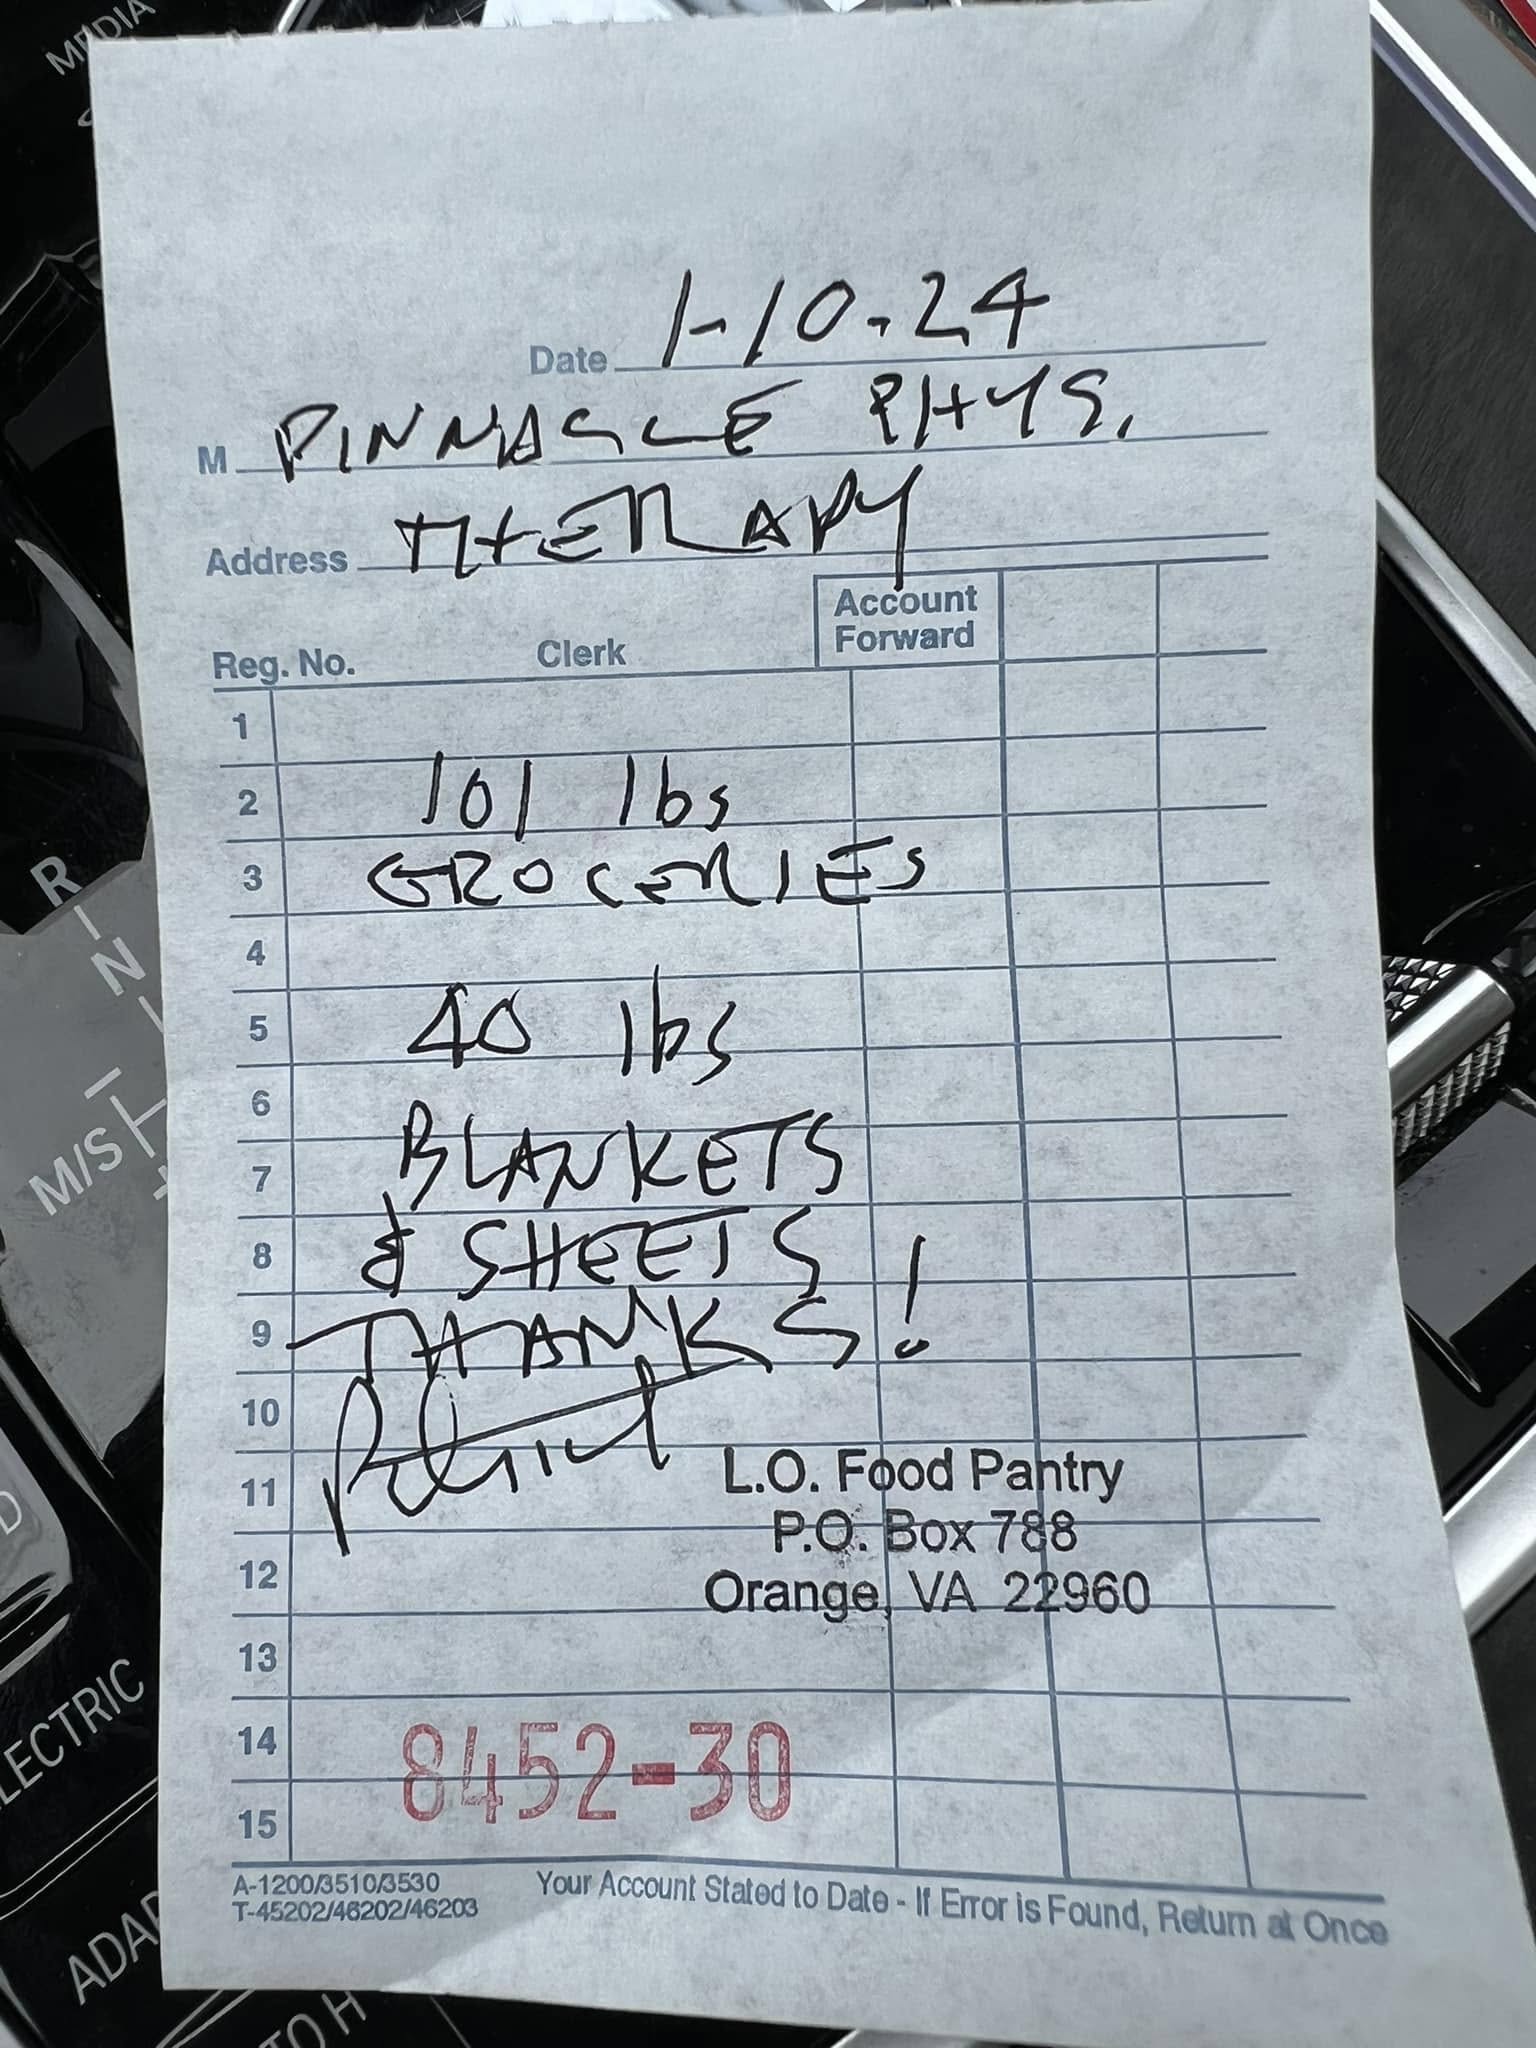 MEDIA
Date 1-10-24
M PINNACLE PHYS.
Address THERAPY
Account
Forward
Reg. No. Clerk
1
2 101 lbs
3 GROCERIES
4
5 40 lbs
6
7 BLANKETS
8 & SHEETS
9 THANKS!
10
11 L.O. Food Pantry
P.O. Box 788
12 Orange, VA 22960
13
14 8452-30
15
A-1200/3510/3530
T-45202/46202/46203
Your Account Stated to Date - If Error is Found, Return at Once
R
N
M/S
D